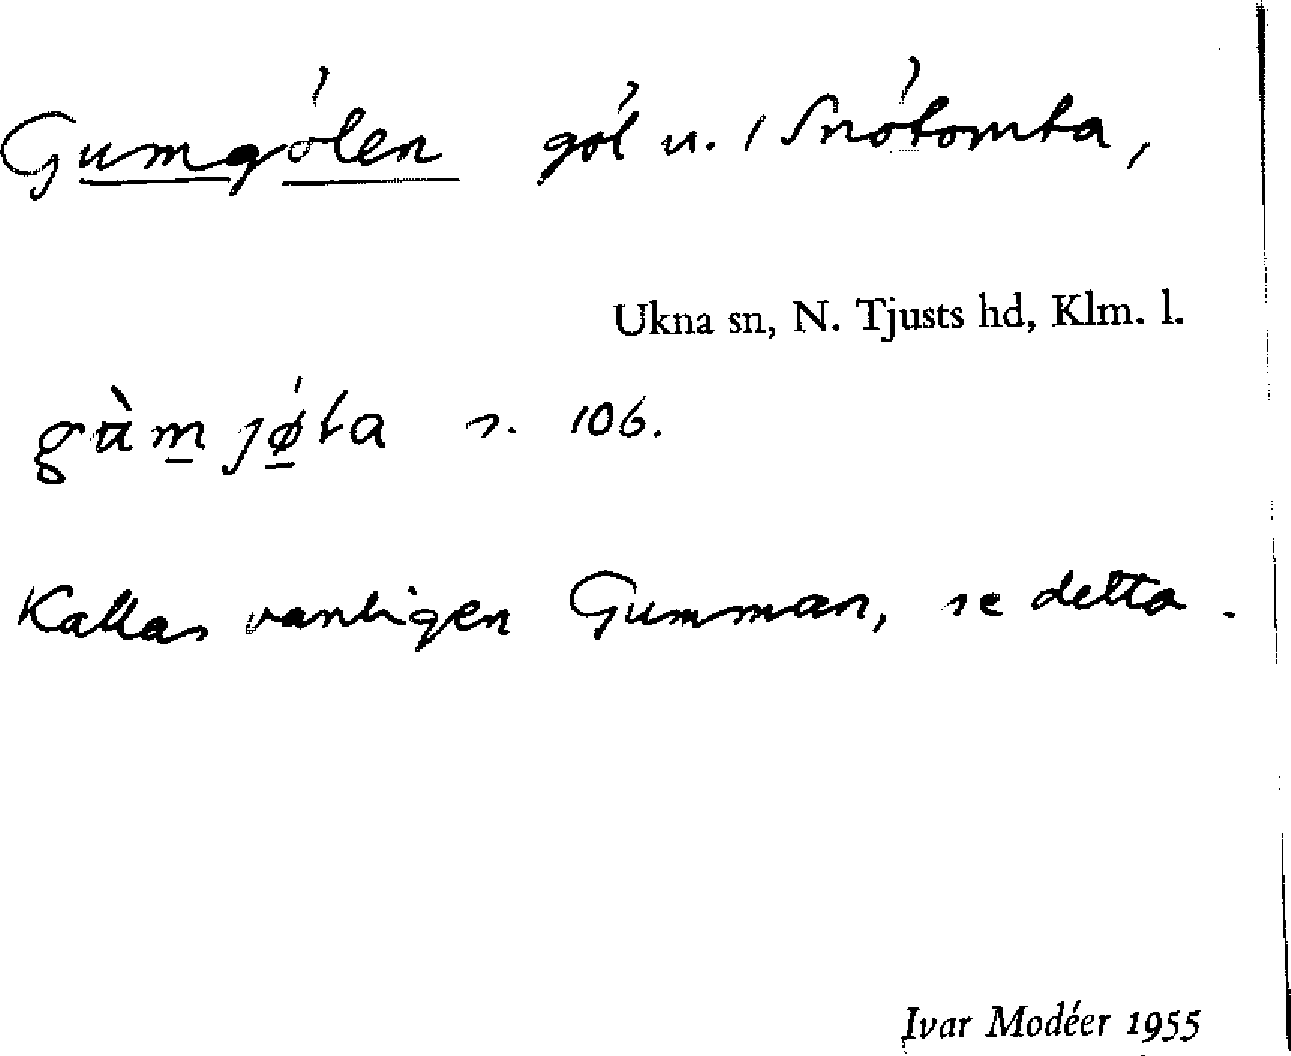 Gumgólen gól u. / Snótomta,
Ukna sn, N. Tjusts hd, Klm. l.
s. 106.
Kallas vanligen Gumman, se detta.
Ivar Modéer 1955